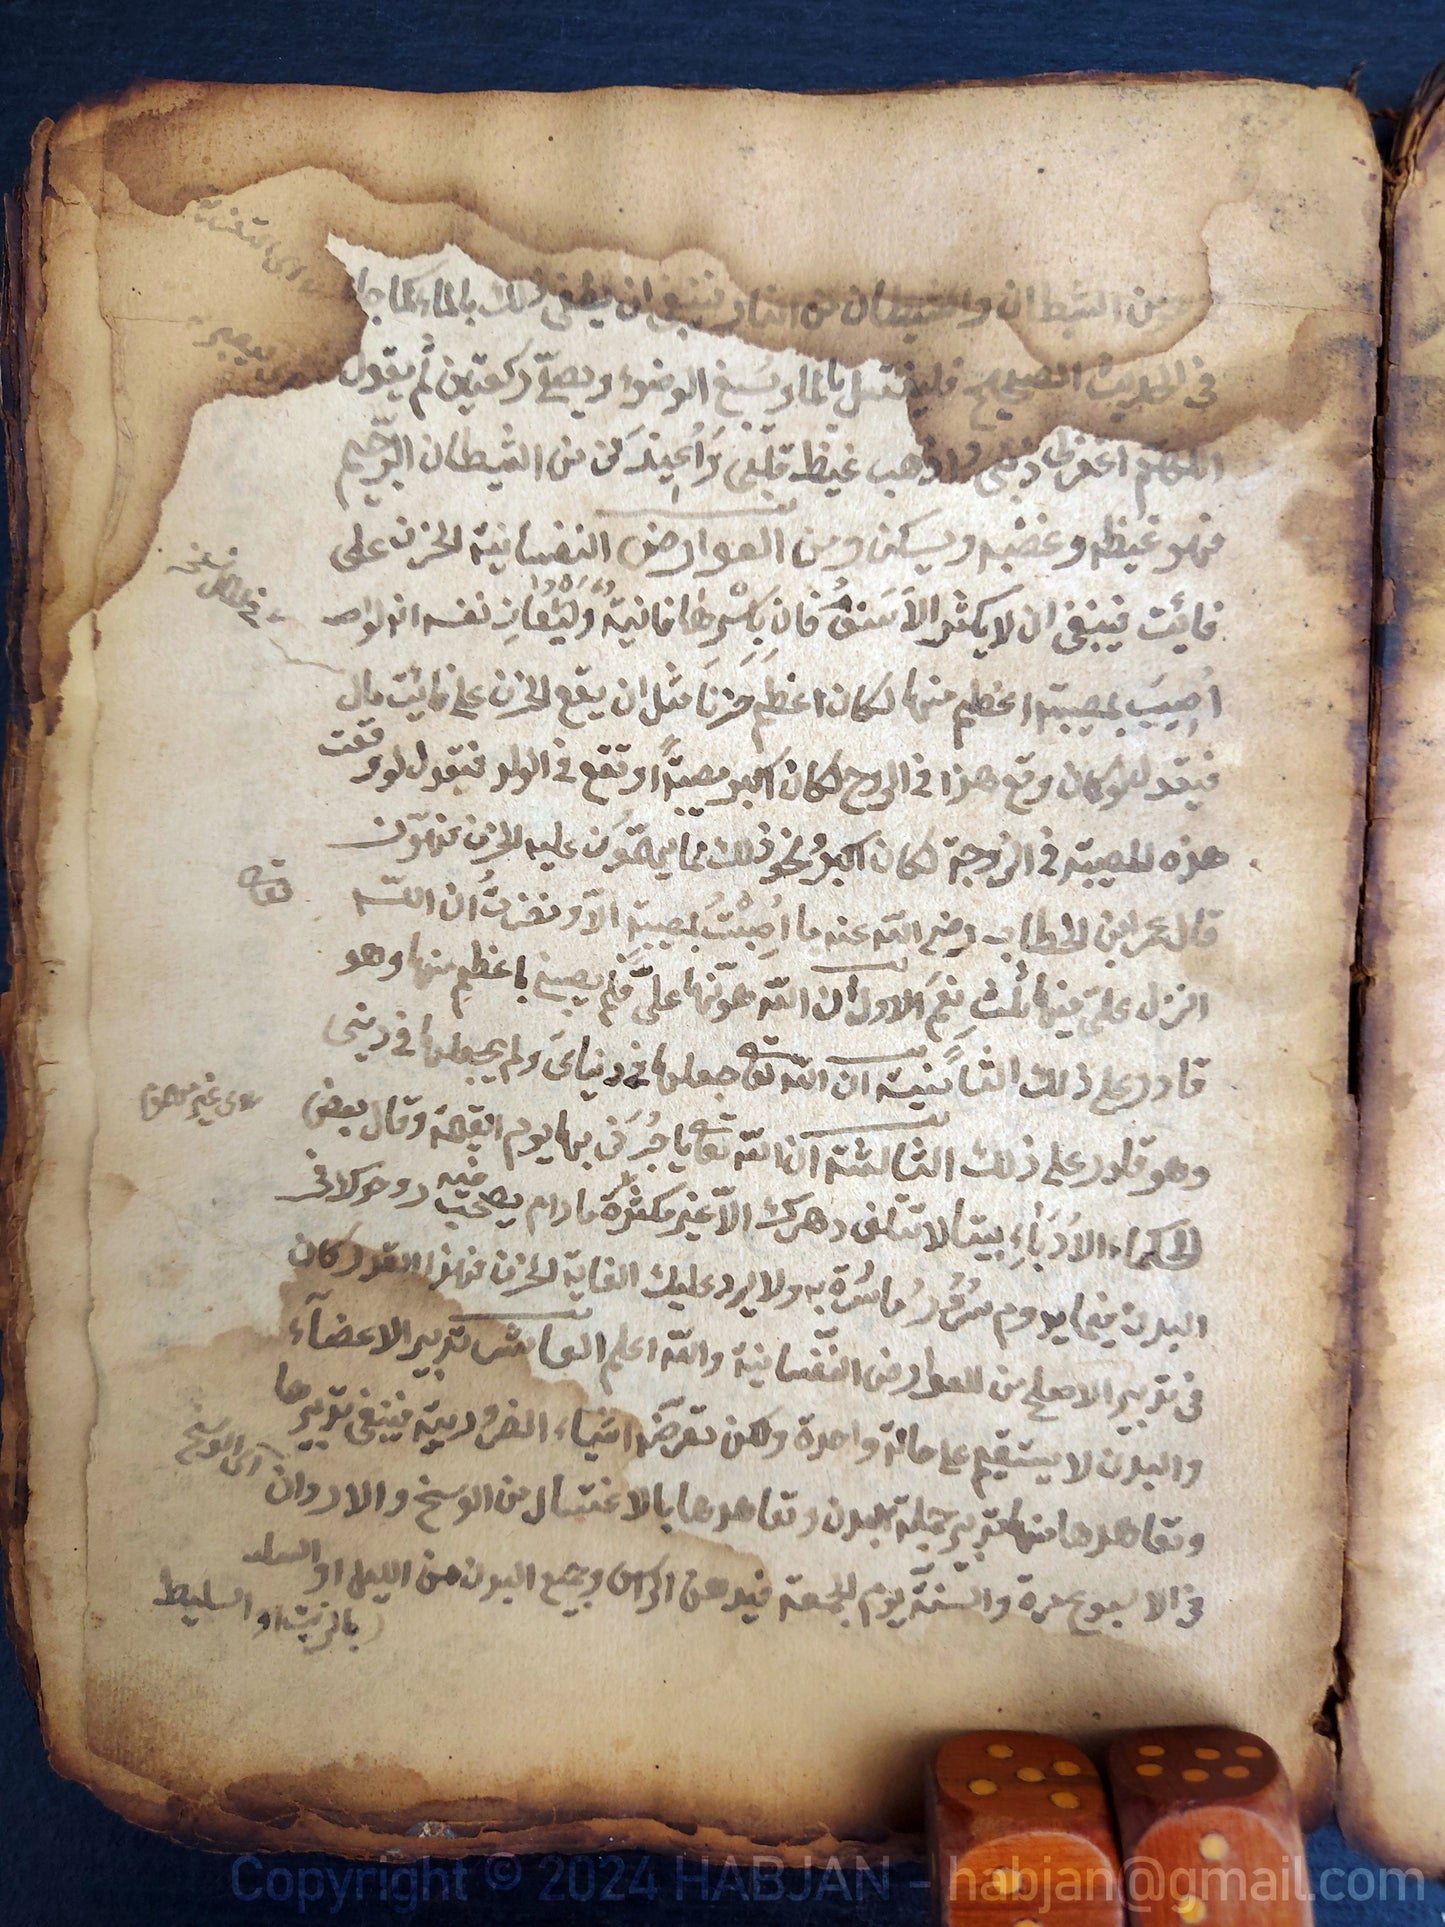 من الشيطان والشيطان من النار فينبغي ان يطفى ذلك بالماء كما جا
في الحديث الصحيح فليغتسل بالماء ويسبغ الوضوء ويصلّي ركعتين ثم يقول
اللهمّ اغفر لي ذنبي واذهب غيظ قلبي وَاُعيذَ من الشيطان الرّجيم
غيظه وغضبه ويسكن ومن العوارض النفسانية الحزن على
فائت فينبغي ان لا يكثر الاَسَف فان بِاَسْرِها فانية نفسه انه لو
اُصِيبَ بمصيبة اعظم منها لكان اعظم حزنا مثل ان يقع الحزن على فائت مال
فيقدر لو كان وقع هذا في الروح لكان اكبر مصيبةً او تقع في الولد فيقدر لو وقعت
هذه المصيبة في الزوجة لكان اكبر ونحو ذلك مما يهوّن عليه الحزن
قال عمر ابن الخطاب رضي الله عنه ما اُصِبْتُ بمصيبة الاّ و ان الله
انزل عليّ فيها ثلث نِعَم الاول ان الله هوّنها عليّ فلم يصبني باعظم منها وهو
قادر على ذلك الثانية ان الله تعا جعلها في دنياي ولم يجعلها في ديني
وهو قادر على ذلك الثالثة ان الله تعا ياجُرَني بها يوم القيمة وقال بعض
الحكماء الاُدَبَاءِ بيتا لا تلقى دهرك الاّ غير مكترث ما دام يصحب فيه روحك لا في
البدن فيما يدوم سُرُور ما سُرَّة به ولا يرد عليك الغاية الحزن فهذا القدر كان
في تدبير الاصلح من العوارض النفسانية والله اعلم العاشر تدبير الاعضآء
والبدن لا يستقيم على حالة واحدة ولكن تعرضه اشياء الضرورية فينبغي تدبيرها
وتعاهدها منها تدبير جملة البدن وتعاهدها بالاغتسال من الوسخ والادران
اى الوسخ
في الاسبوع مرة والسّنّة يوم الجمعة فيدهن الراس وجميع البدن من الليل او
بالزيت او السليط
Copyright © 2024 HABJAN - habjan@gmail.com